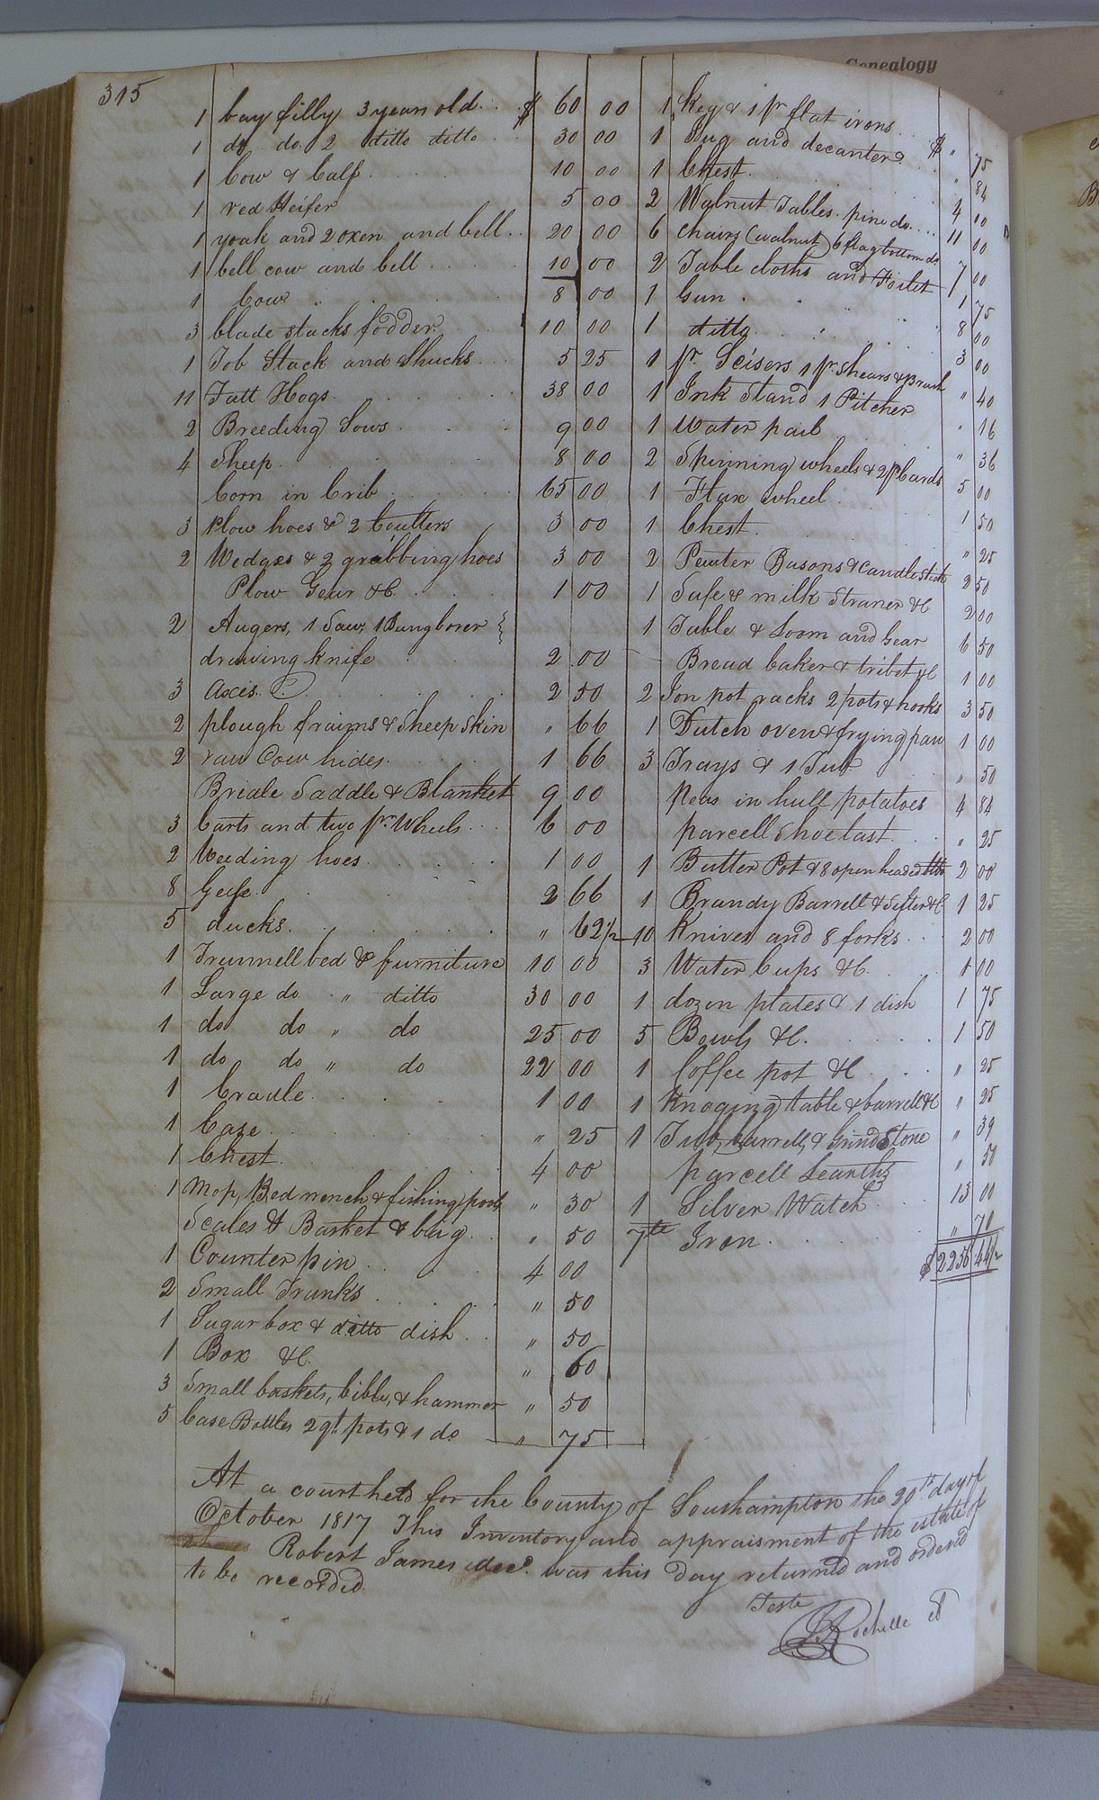 Genealogy
315
1 bay filly 3 year old $ 60 00
1 do do 2 ditto ditto 30 00
1 Cow & Calf 10 00
1 red Heifer 5 00
1 yoak and 2 oxen and bell 20 00
1 bell cow and bell 10 00
1 Cow 8 00
3 blade stacks fodder 10 00
1 Top Stack and Shucks 5 25
11 Fatt Hogs 38 00
2 Breeding Sows 9 00
4 Sheep 8 00
Corn in Crib 65 00
3 Plow hoes & 2 Coulters 3 00
2 Wedges & 2 grubbing hoes 3 00
Plow Gear &C 1 00
2 Augers, 1 Saw, 1 Bungborer
drawing knife 2 00
3 Axis 2 50
2 plough fraims & Sheep Skin " 66
2 raw Cow hides 1 66
Bridle Saddle & Blanket 9 00
3 Carts and two pr. Wheels 6 00
2 Weeding hoes 1 00
8 Geese 2 66
5 ducks " 62½
1 Trunnell bed & furniture 10 00
1 Large do " ditto 30 00
1 do do " do 25 00
1 do do " do 22 00
1 Cradle 1 00
1 Case " 25
1 Chest 4 00
1 Mop, Bed wench & fishing pole " 30
Scales & Basket & bag " 50
1 Counterpin 4 00
2 Small Trunks " 50
1 Sugar box & ditto dish " 50
1 Box &C " 60
3 Small baskets, bible, & hammer " 50
5 Case Bottles 2 qt. pots & 1 do " 75
1 Key & 1 pr flat irons $ " 75
1 Jug and decanters " 84
1 Chest 4 00
2 Walnut Tables pine do 11 00
6 Chairs (walnut) 6 flag bottom do 7 00
2 Table cloths and Toilet 1 75
1 Gun 8 00
1 ditto 3 00
1 pr. Scisers 1 pr. Shears & Brush " 40
1 Ink Stand 1 Pitcher " 16
1 Water pail " 36
2 Spinning wheels & 2 pr Cards 5 00
1 Flax wheel 1 50
1 Chest " 25
2 Pewter Basons & Candlestick 2 50
1 Safe & milk Straner &C 2 00
1 Table & Loom and Gear 6 50
Bread baker & tribet &C 1 00
2 Ion pot racks 2 pots & hooks 3 50
1 Dutch oven & frying pan 1 00
3 Trays & 1 Tub " 50
Peas in hull potatoes 4 84
parcell Shoe last " 25
1 Butter Pot & 8 open headed 2 00
1 Brandy Barrell & Sifter &C 1 25
10 Knives and 8 forks 2 00
3 Water Cups &C 1 00
1 dozen plates & 1 dish 1 75
5 Bowls &C 1 50
1 Coffee pot &C " 25
1 table & barrell &C " 25
1 Tub, barrell, & Grind Stone " 39
parcell " 50
1 Silver Watch 13 00
Iron " 70
$ 2256 44½
At a court held for the County of Southampton the 20th day of
October 1817 This Inventory and appraisment of the estate of
Robert James decd. was this day returned and ordered
to be recorded
Teste
Rochelle